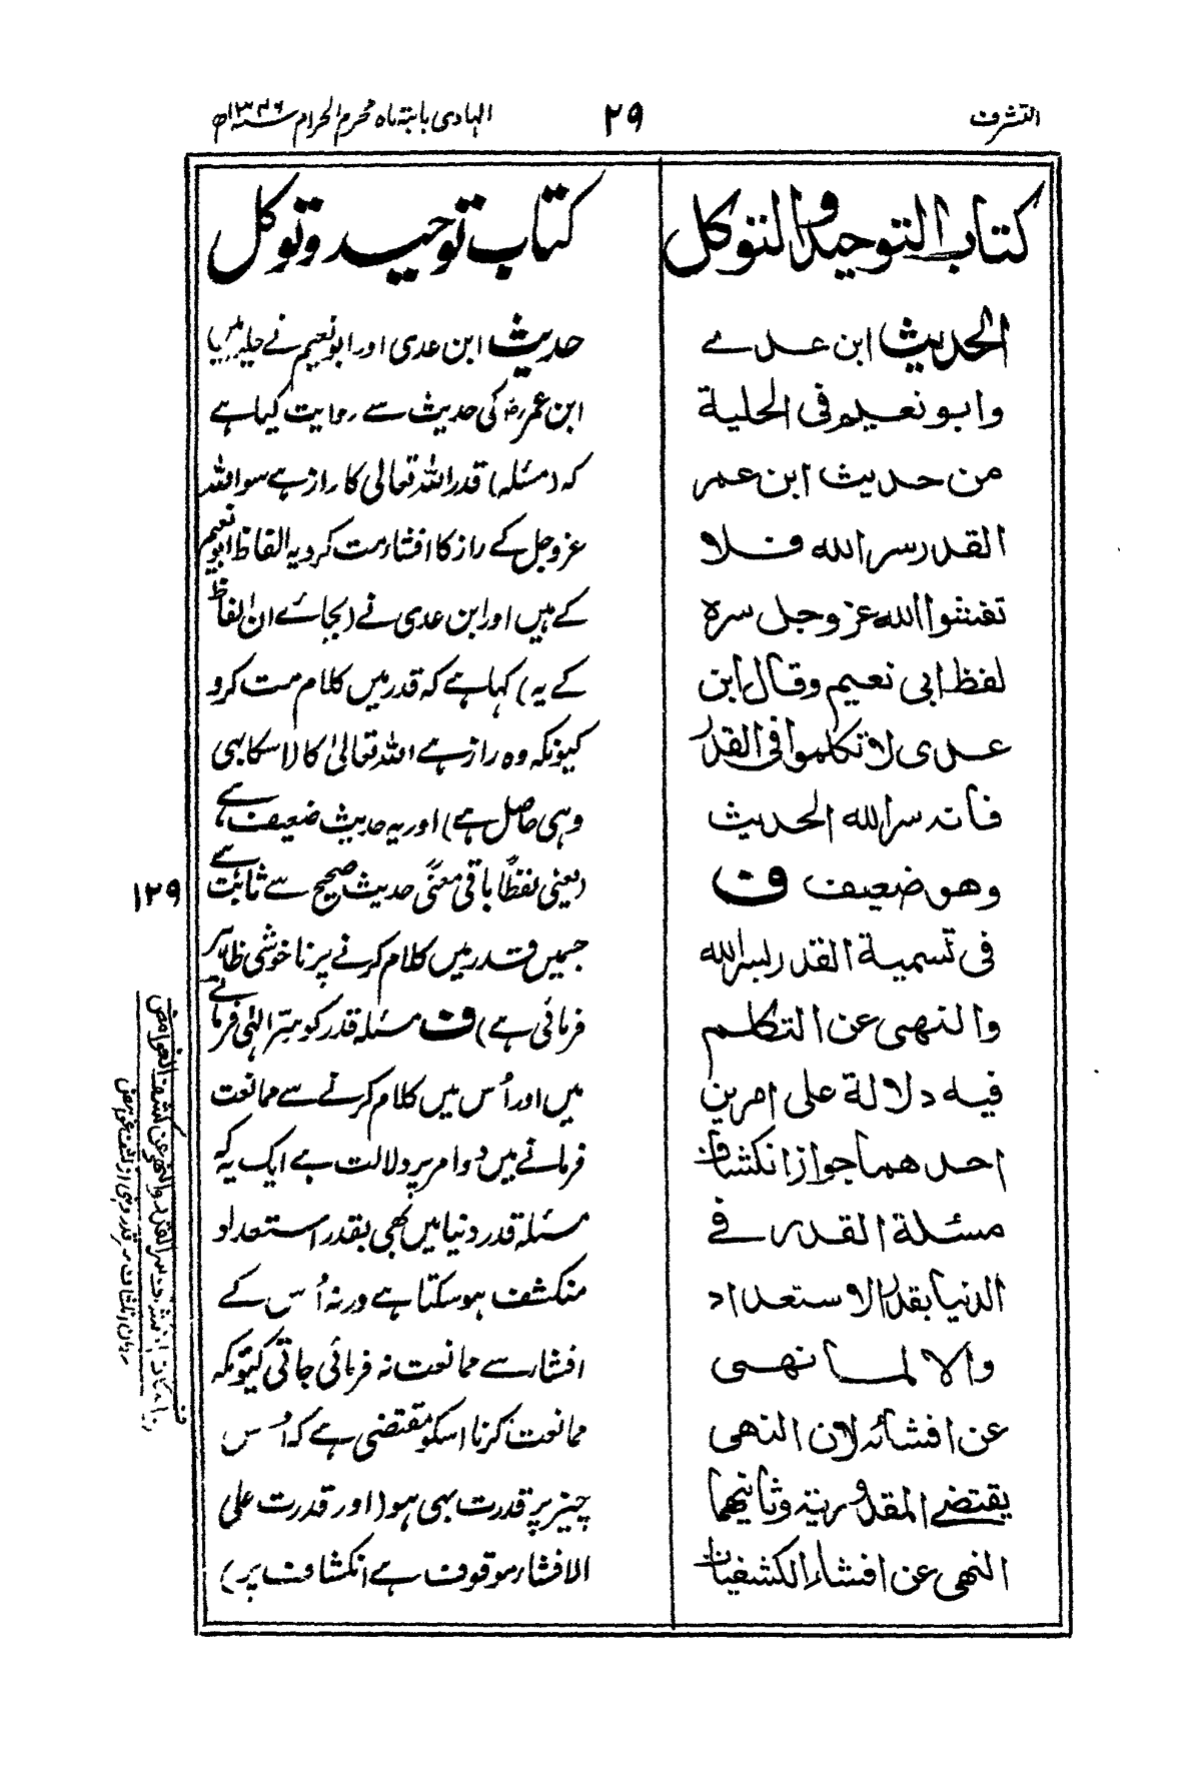 التشرف
۲۹
الہادی بابتہ ماہ محرم الحرام سنہ ۱۳۴۶ھ
کتاب التوحید والتوکل
الحدیث ابن عدے
وابو نعیم فی الحلیة
من حدیث ابن عمر
القدر سر اللہ فلا
تفشوا اللہ عز وجل سرہ
لفظ ابی نعیم وقال ابن
عدی لا تکلموا فی القدر
فانہ سر اللہ الحدیث
وھو ضعیف ف
فی تسمیة القدر بسر اللہ
والنھی عن التکلم
فیہ دلالة علی امرین
احدھما جواز انکشاف
مسئلة القدر فے
الدنیا بقدر الاستعداد
والا لما نھی
عن افشائہ لان النھی
یقتضے المقدوریة وثانیھما
النھی عن افشاء الکشفیات
کتاب توحید و توکل
حدیث ابن عدی اور ابو نعیم نے حلیہ میں
ابن عمرؓ کی حدیث سے روایت کیا ہے
کہ (مسئلہ) قدر اللہ تعالی کا راز ہے سو اللہ
عزوجل کے راز کا افشار مت کرو یہ الفاظ ابو نعیم
کے ہیں اور ابن عدی نے (بجائے ان الفاظ
کے یہ) کہا ہے کہ قدر میں کلام مت کرو
کیونکہ وہ راز ہے اللہ تعالیٰ کا (اسکا بہی
وہی حاصل ہے) اور یہ حدیث ضعیف ہے
(یعنی لفظاً باقی معنًی حدیث صحیح سے ثابت ہے
جسمیں قدر میں کلام کرنے پر ناخوشی ظاہر
فرمائی ہے) ف مسئلہ قدر کو سِرّ الٰہی فرمانے
میں اور اُس میں کلام کرنے سے ممانعت
فرمانے میں دو امر پر دلالت ہے ایک یہ کہ
مسئلہ قدر دنیا میں بھی بقدر استعداد
منکشف ہو سکتا ہے ورنہ اُس کے
افشار سے ممانعت نہ فرمائی جاتی کیونکہ
ممانعت کرنا اسکو مقتضی ہے کہ اُس
چیز پر قدرت بہی ہو (اور قدرت علی
الافشار موقوف ہے انکشاف پر)
۱۲۹